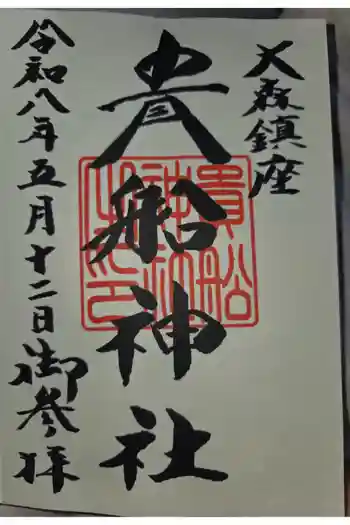 大森鎮座
貴船神社
貴船神社之印
令和八年五月十二日御参拝